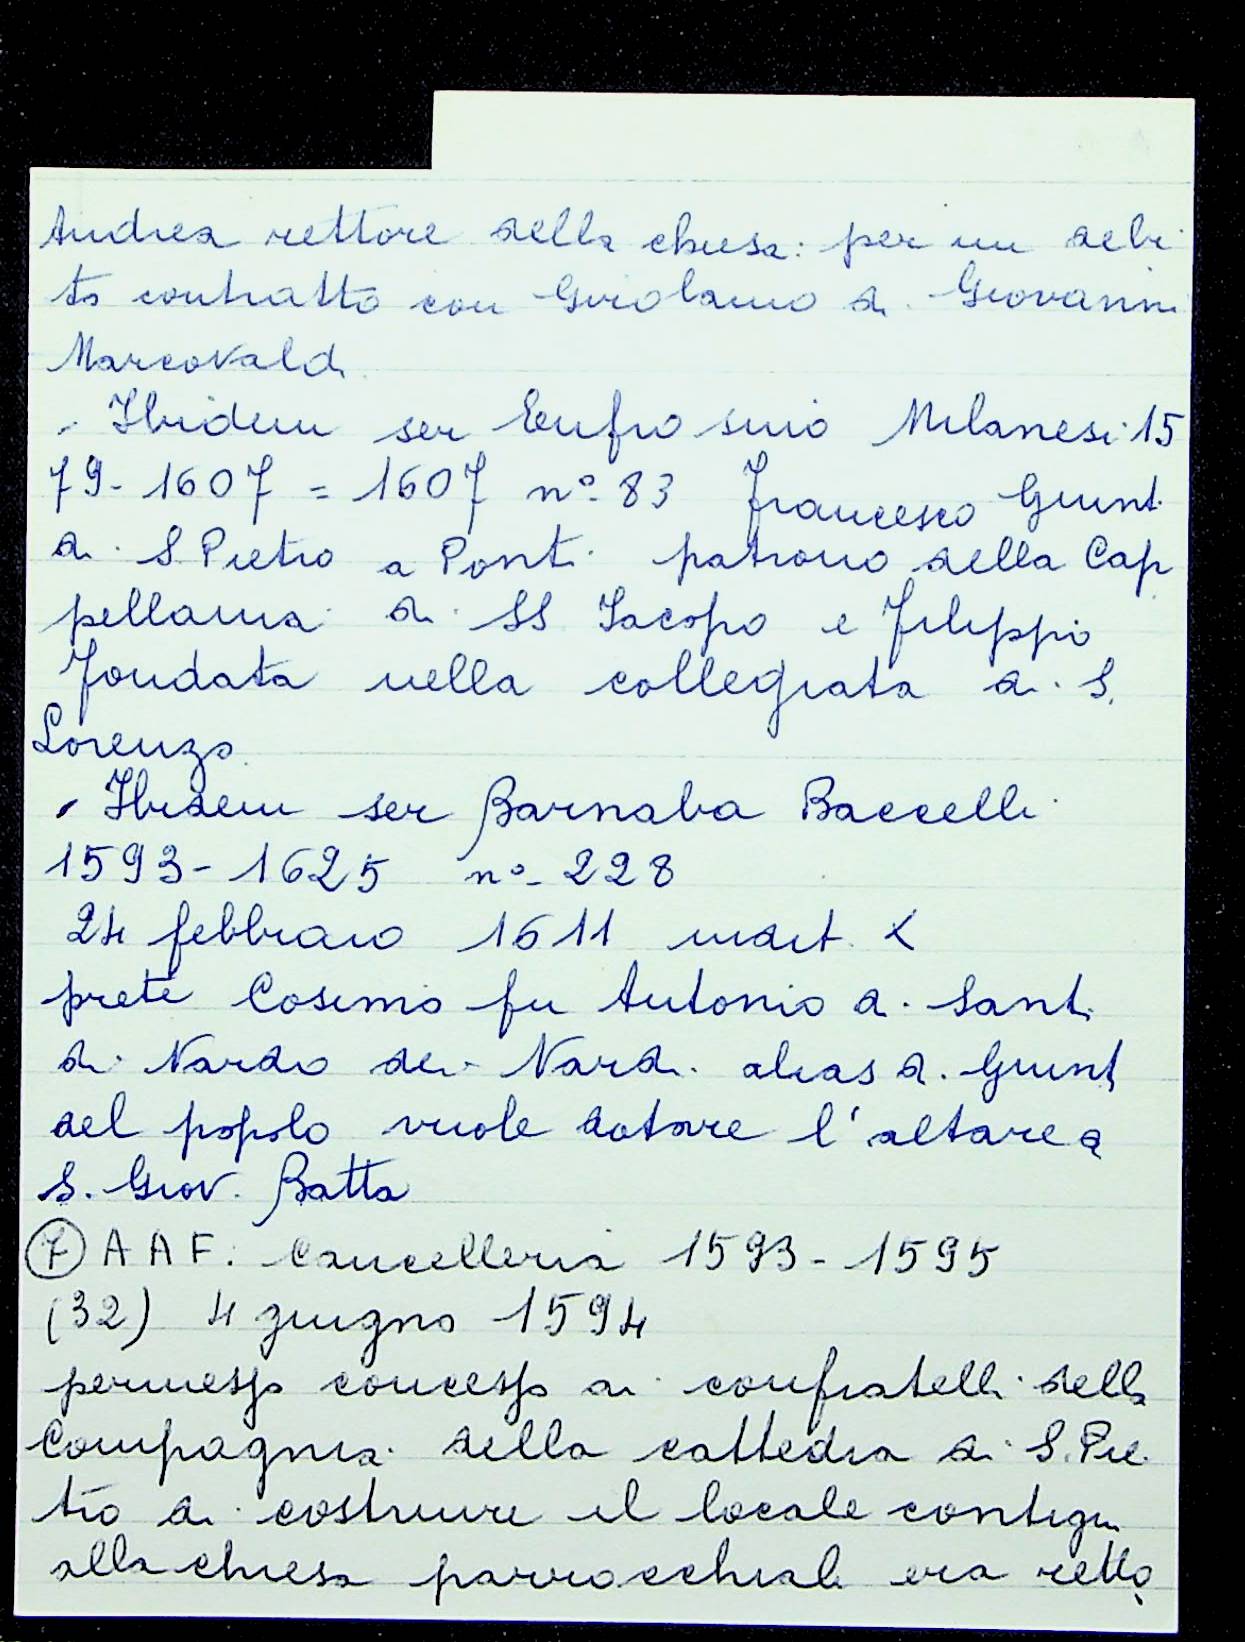 Andrea rettore della chiesa: per un debi
to contratto con Girolamo di Giovanni
Marcovaldi
. Ibidem ser Eufrosino Milanesi 15
79-1607 = 1607 nº 83 Francesco Giunti
di S. Pietro a Ponti patrono della Cap
pellania di SS Jacopo e Filippo
fondata nella collegiata di S.
Lorenzo.
. Ibidem ser Barnaba Baccelli
1593-1625 nº 228
24 febbraio 1611 indit. X
prete Cosimo fu Antonio di Santi
di Nardo dei Nardi alias di Giunti
del popolo vuole dotare l'altare
S. Giov. Batta
7 A A F. Cancelleria 1593-1595
(32) 4 giugno 1594
permesso concesso ai confratelli della
Compagnia della cattedra di S. Pie
tro di costruire il locale contiguo
alla chiesa parrocchiale era retto